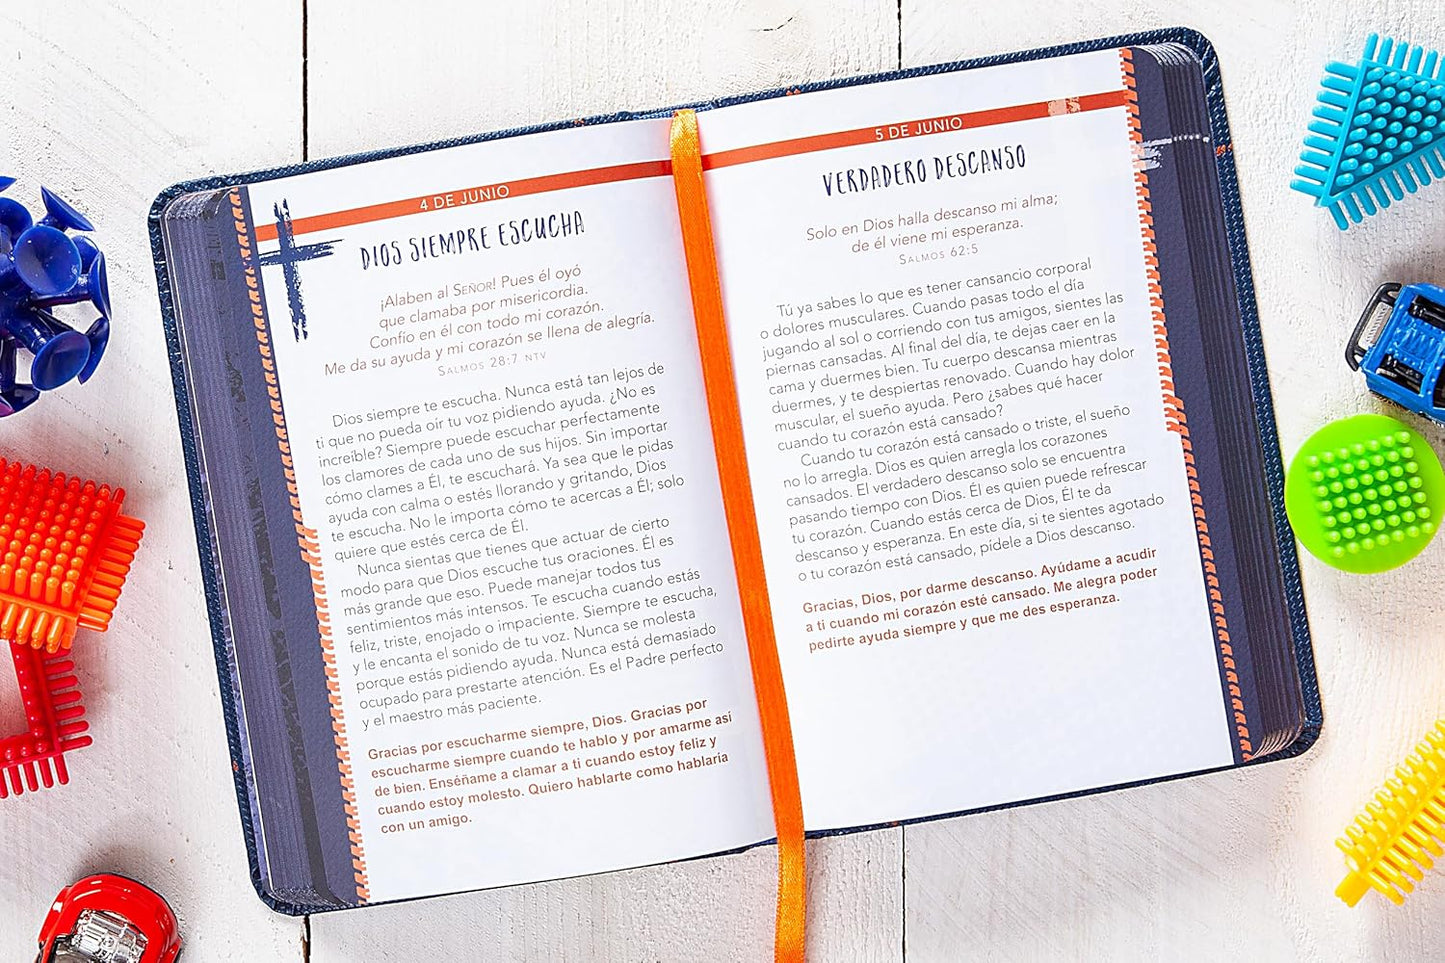 4 DE JUNIO
DIOS SIEMPRE ESCUCHA
¡Alaben al SEÑOR! Pues él oyó
que clamaba por misericordia.
Confío en él con todo mi corazón.
Me da su ayuda y mi corazón se llena de alegría.
SALMOS 28:7 NTV
Dios siempre te escucha. Nunca está tan lejos de
ti que no pueda oír tu voz pidiendo ayuda. ¿No es
increíble? Siempre puede escuchar perfectamente
los clamores de cada uno de sus hijos. Sin importar
cómo clames a Él, te escuchará. Ya sea que le pidas
ayuda con calma o estés llorando y gritando, Dios
te escucha. No le importa cómo te acercas a Él; solo
quiere que estés cerca de Él.
Nunca sientas que tienes que actuar de cierto
modo para que Dios escuche tus oraciones. Él es
más grande que eso. Puede manejar todos tus
sentimientos más intensos. Te escucha cuando estás
feliz, triste, enojado o impaciente. Siempre te escucha,
y le encanta el sonido de tu voz. Nunca se molesta
porque estás pidiendo ayuda. Nunca está demasiado
ocupado para prestarte atención. Es el Padre perfecto
y el maestro más paciente.
Gracias por escucharme siempre, Dios. Gracias por
escucharme siempre cuando te hablo y por amarme así
de bien. Enséñame a clamar a ti cuando estoy feliz y
cuando estoy molesto. Quiero hablarte como hablaría
con un amigo.
5 DE JUNIO
VERDADERO DESCANSO
Solo en Dios halla descanso mi alma;
de él viene mi esperanza.
SALMOS 62:5
Tú ya sabes lo que es tener cansancio corporal
o dolores musculares. Cuando pasas todo el día
jugando al sol o corriendo con tus amigos, sientes las
piernas cansadas. Al final del día, te dejas caer en la
cama y duermes bien. Tu cuerpo descansa mientras
duermes, y te despiertas renovado. Cuando hay dolor
muscular, el sueño ayuda. Pero ¿sabes qué hacer
cuando tu corazón está cansado?
Cuando tu corazón está cansado o triste, el sueño
no lo arregla. Dios es quien arregla los corazones
cansados. El verdadero descanso solo se encuentra
pasando tiempo con Dios. Él es quien puede refrescar
tu corazón. Cuando estás cerca de Dios, Él te da
descanso y esperanza. En este día, si te sientes agotado
o tu corazón está cansado, pídele a Dios descanso.
Gracias, Dios, por darme descanso. Ayúdame a acudir
a ti cuando mi corazón esté cansado. Me alegra poder
pedirte ayuda siempre y que me des esperanza.